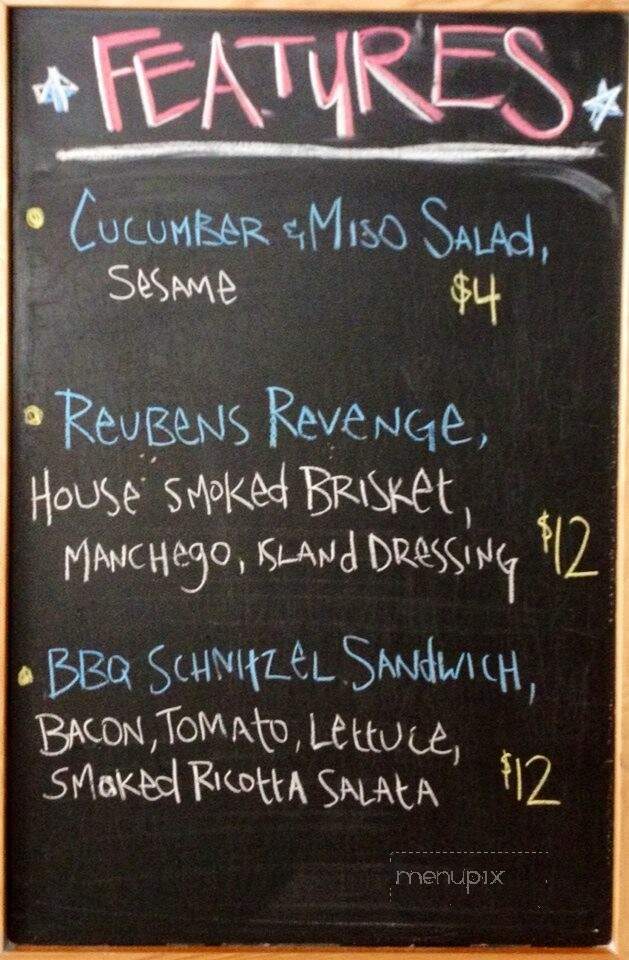 FEATURES
CUCUMBER & MISO SALAD,
SESAME $4
REUBENS REVENGE,
HOUSE SMOKED BRISKET,
MANCHEGO, ISLAND DRESSING $12
BBQ SCHNITZEL SANDWICH,
BACON, TOMATO, LETTUCE,
SMOKED RICOTTA SALATA $12
menupix